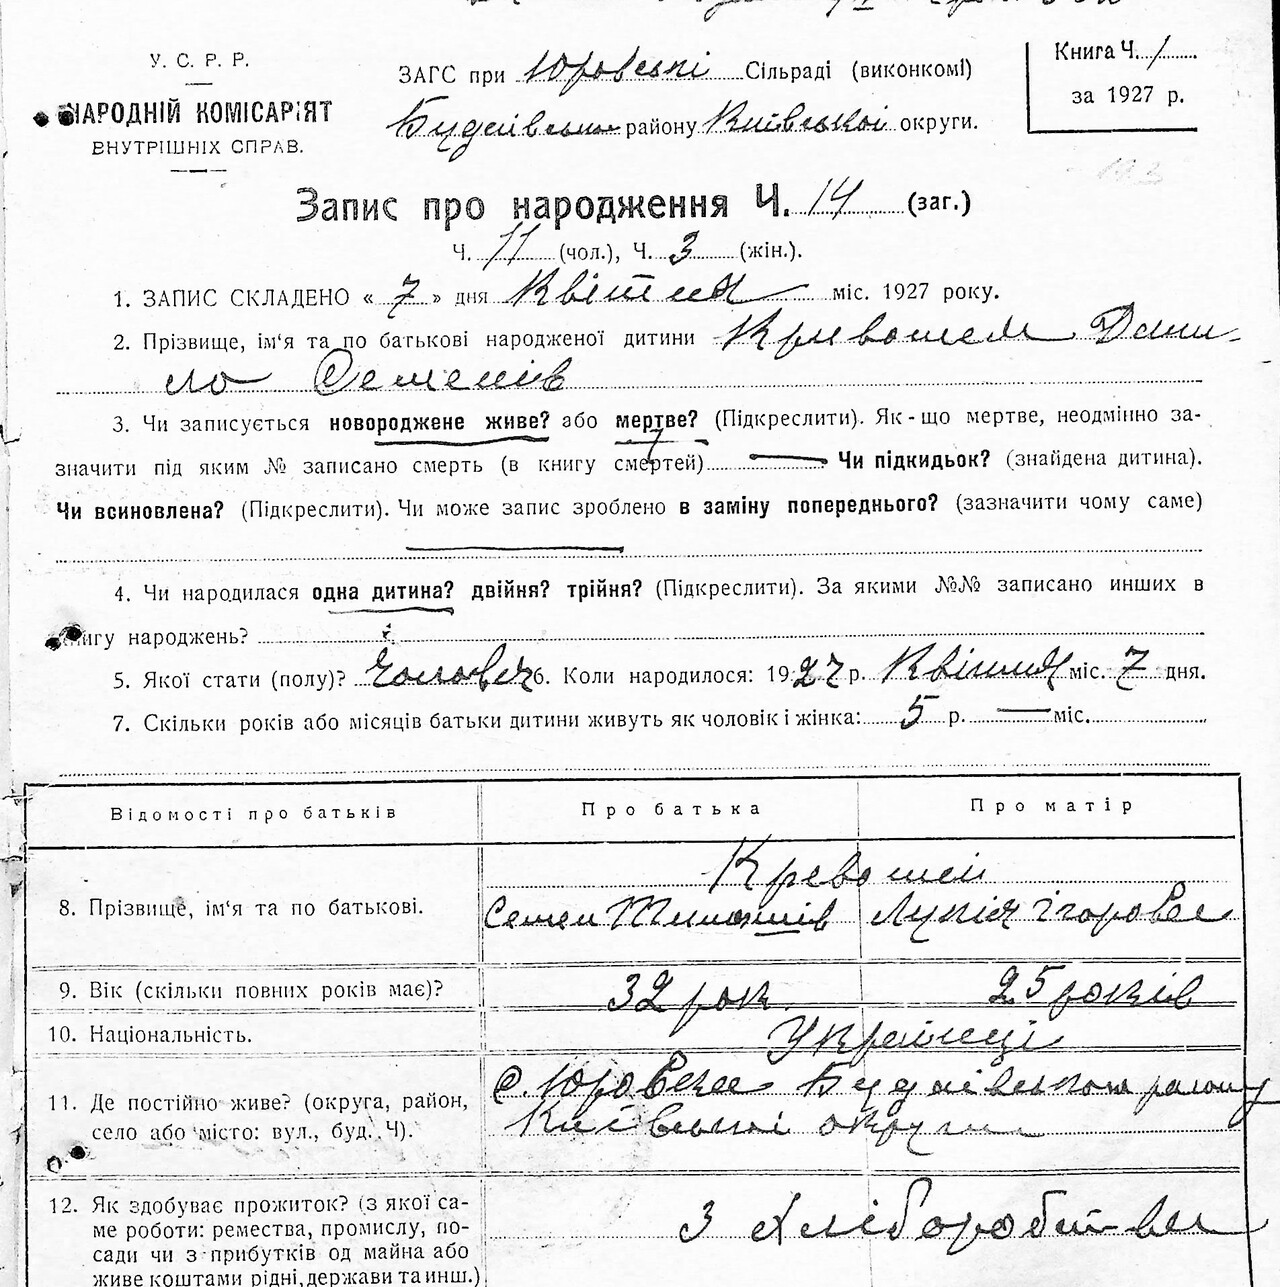 У. С. Р. Р.
НАРОДНІЙ КОМІСАРІЯТ
ВНУТРІШНІХ СПРАВ.
ЗАГС при Юровські Сільраді (виконкомі)
Будаївськ району Київської округи.
Книга Ч. 1
за 1927 р.
Запис про народження Ч. 14 (заг.)
Ч. 11 (чол.), Ч. 3 (жін.).
1. ЗАПИС СКЛАДЕНО « 7 » дня Квітня міс. 1927 року.
2. Прізвище, ім'я та по батькові народженої дитини Кривошея Дани-
ло Семенів
3. Чи записується новороджене живе? або мертве? (Підкреслити). Як-що мертве, неодмінно за-
значити під яким № записано смерть (в книгу смертей) — Чи підкидьок? (знайдена дитина).
Чи всиновлена? (Підкреслити). Чи може запис зроблено в заміну попереднього? (зазначити чому саме)
4. Чи народилася одна дитина? двійня? трійня? (Підкреслити). За якими №№ записано инших в
книгу народжень?
5. Якої стати (полу)? Чоловіч 6. Коли народилося: 1927 р. Квітня міс. 7 дня.
7. Скільки років або місяців батьки дитини живуть як чоловік і жінка: 5 р. — міс.
Відомості про батьків Про батька Про матір
Кревошей
8. Прізвище, ім'я та по батькові. Семен Тимошів Лукія Ігоровна
9. Вік (скільки повних років має)? 32 рок 25 років
10. Національність. Українці
11. Де постійно живе? (округа, район, с. Юровка Будаївського району
село або місто: вул., буд. Ч). Київської округи
12. Як здобуває прожиток? (з якої са-
ме роботи: ремества, промислу, по- З хліборобства
сади чи з прибутків од майна або
живе коштами рідні, держави та инш.)